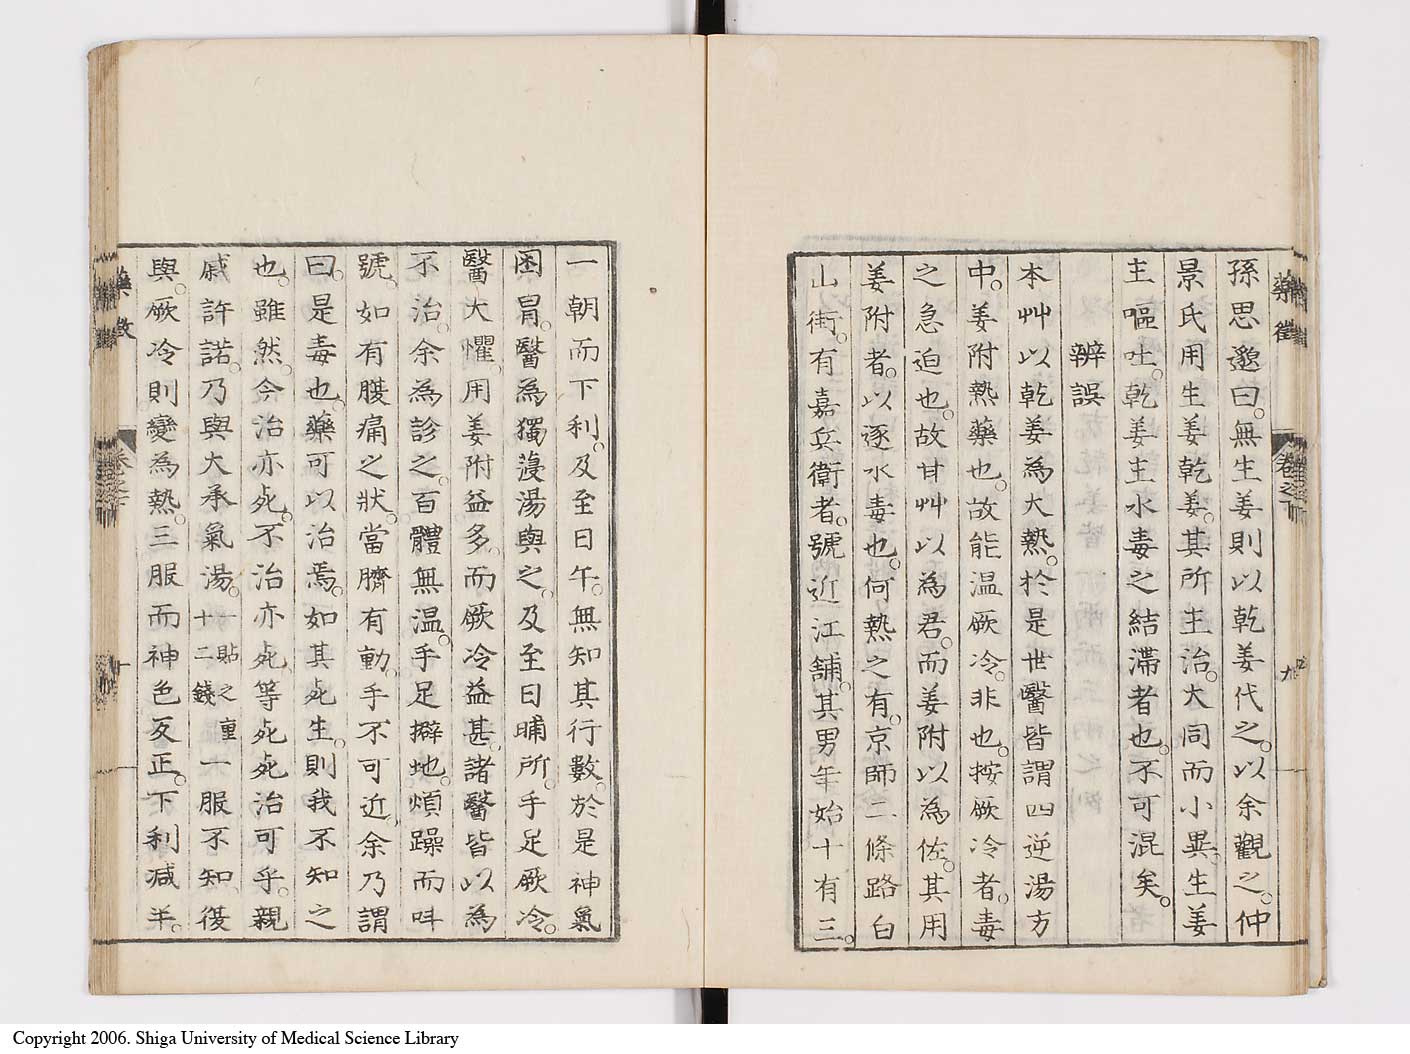 藥徵
卷之下
九
孫思邈曰。無生姜則以乾姜代之。以余觀之。仲
景氏用生姜乾姜。其所主治。大同而小異。生姜
主嘔吐。乾姜主水毒之結滯者也。不可混矣。
辨誤
本艸以乾姜為大熱。於是世醫皆謂四逆湯方
中。姜附熱藥也。故能温厥冷。非也。按厥冷者。毒
之急迫也。故甘艸以為君。而姜附以為佐。其用
姜附者。以逐水毒也。何熱之有。京師二條路白
山街。有嘉兵衛者。號近江舖。其男年始十有三。
一朝而下利。及至日午。無知其行數。於是神氣
困冒。醫為獨葠湯與之。及至日晡所。手足厥冷。
醫大懼。用姜附益多。而厥冷益甚。諸醫皆以為
不治。余為診之。百體無温。手足擗地。煩躁而叫
號。如有腹痛之狀。當臍有動。手不可近。余乃謂
曰。是毒也。藥可以治焉。如其死生。則我不知之
也。雖然。今治亦死。不治亦死。等死死治可乎。親
戚許諾。乃與大承氣湯。一貼之重十二錢一服不知。復
與。厥冷則變為熱。三服而神色反正。下利減半。
藥徵
十